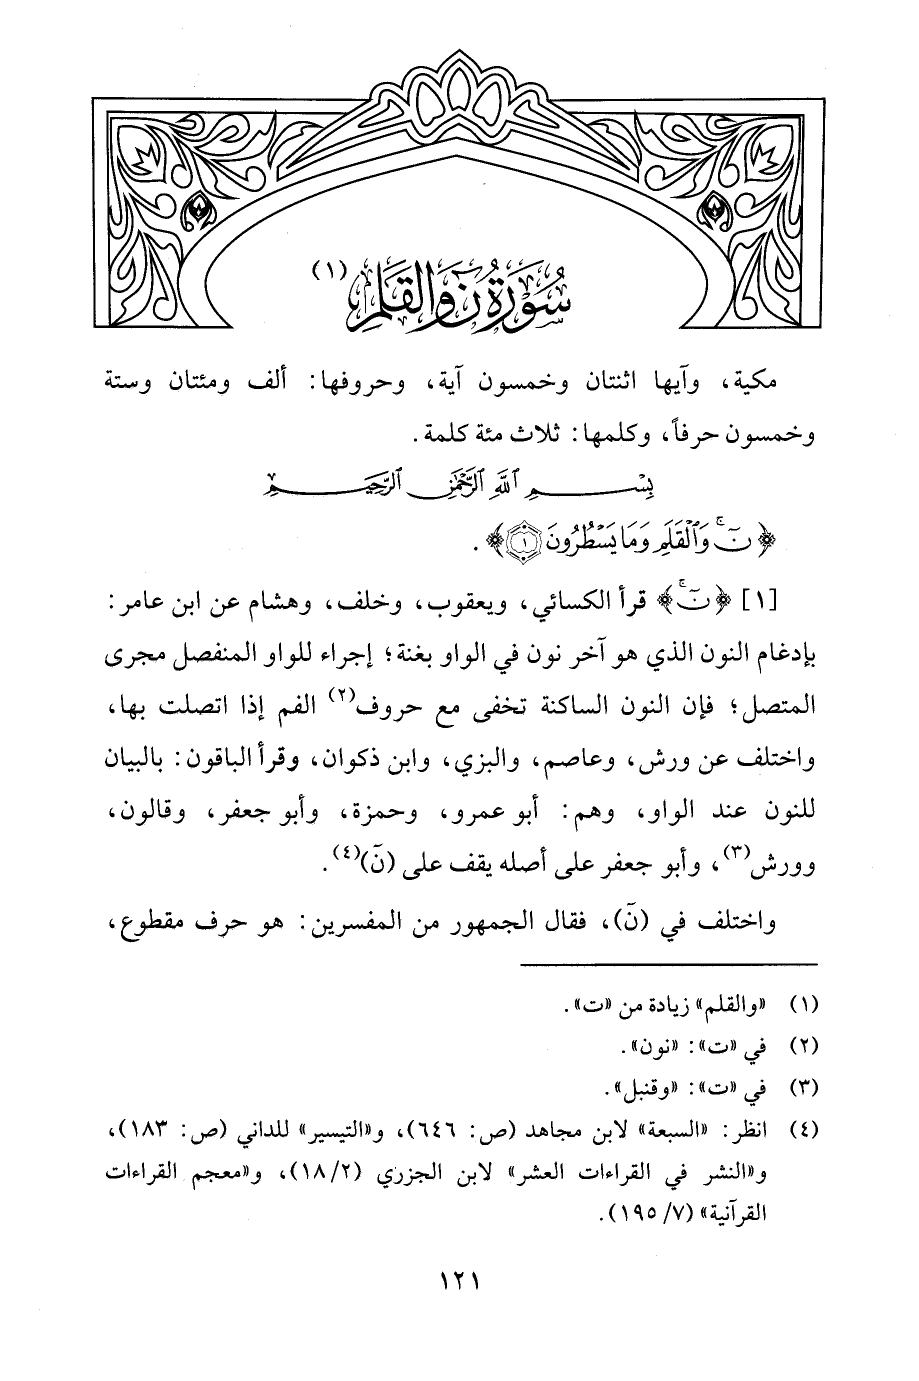 سُورَةُ نٓ وَالْقَلَمِ (١)
مكية، وآيها اثنتان وخمسون آية، وحروفها: ألف ومئتان وستة
وخمسون حرفاً، وكلمها: ثلاث مئة كلمة.
بِسْمِ ٱللَّهِ ٱلرَّحْمَٰنِ ٱلرَّحِيمِ
﴿نٓ ۚ وَٱلْقَلَمِ وَمَا يَسْطُرُونَ ١﴾.
[١] ﴿نٓ ۚ﴾ قرأ الكسائي، ويعقوب، وخلف، وهشام عن ابن عامر:
بإدغام النون الذي هو آخر نون في الواو بغنة؛ إجراء للواو المنفصل مجرى
المتصل؛ فإن النون الساكنة تخفى مع حروف(٢) الفم إذا اتصلت بها،
واختلف عن ورش، وعاصم، والبزي، وابن ذكوان، وقرأ الباقون: بالبيان
للنون عند الواو، وهم: أبو عمرو، وحمزة، وأبو جعفر، وقالون،
وورش(٣)، وأبو جعفر على أصله يقف على (نٓ)(٤).
واختلف في (نٓ)، فقال الجمهور من المفسرين: هو حرف مقطوع،
(١) «والقلم» زيادة من «ت».
(٢) في «ت»: «نون».
(٣) في «ت»: «وقنبل».
(٤) انظر: «السبعة» لابن مجاهد (ص: ٦٤٦)، و«التيسير» للداني (ص: ١٨٣)،
و«النشر في القراءات العشر» لابن الجزري (٢/١٨)، و«معجم القراءات
القرآنية» (٧/ ١٩٥).
١٢١